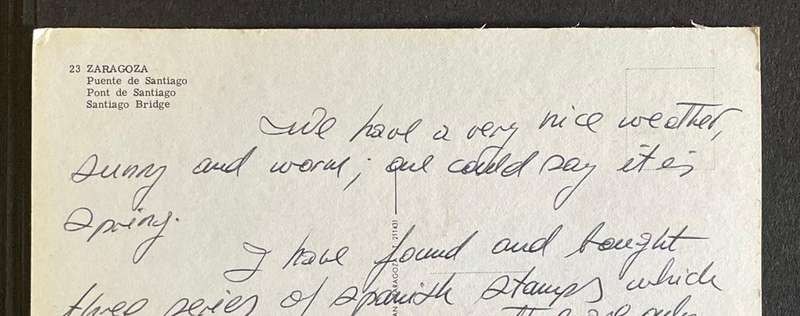 23 ZARAGOZA
Puente de Santiago
Pont de Santiago
Santiago Bridge
We have a very nice weather,
sunny and warm; one could say it is
spring.
I have found and bought
three series of Spanish stamps which